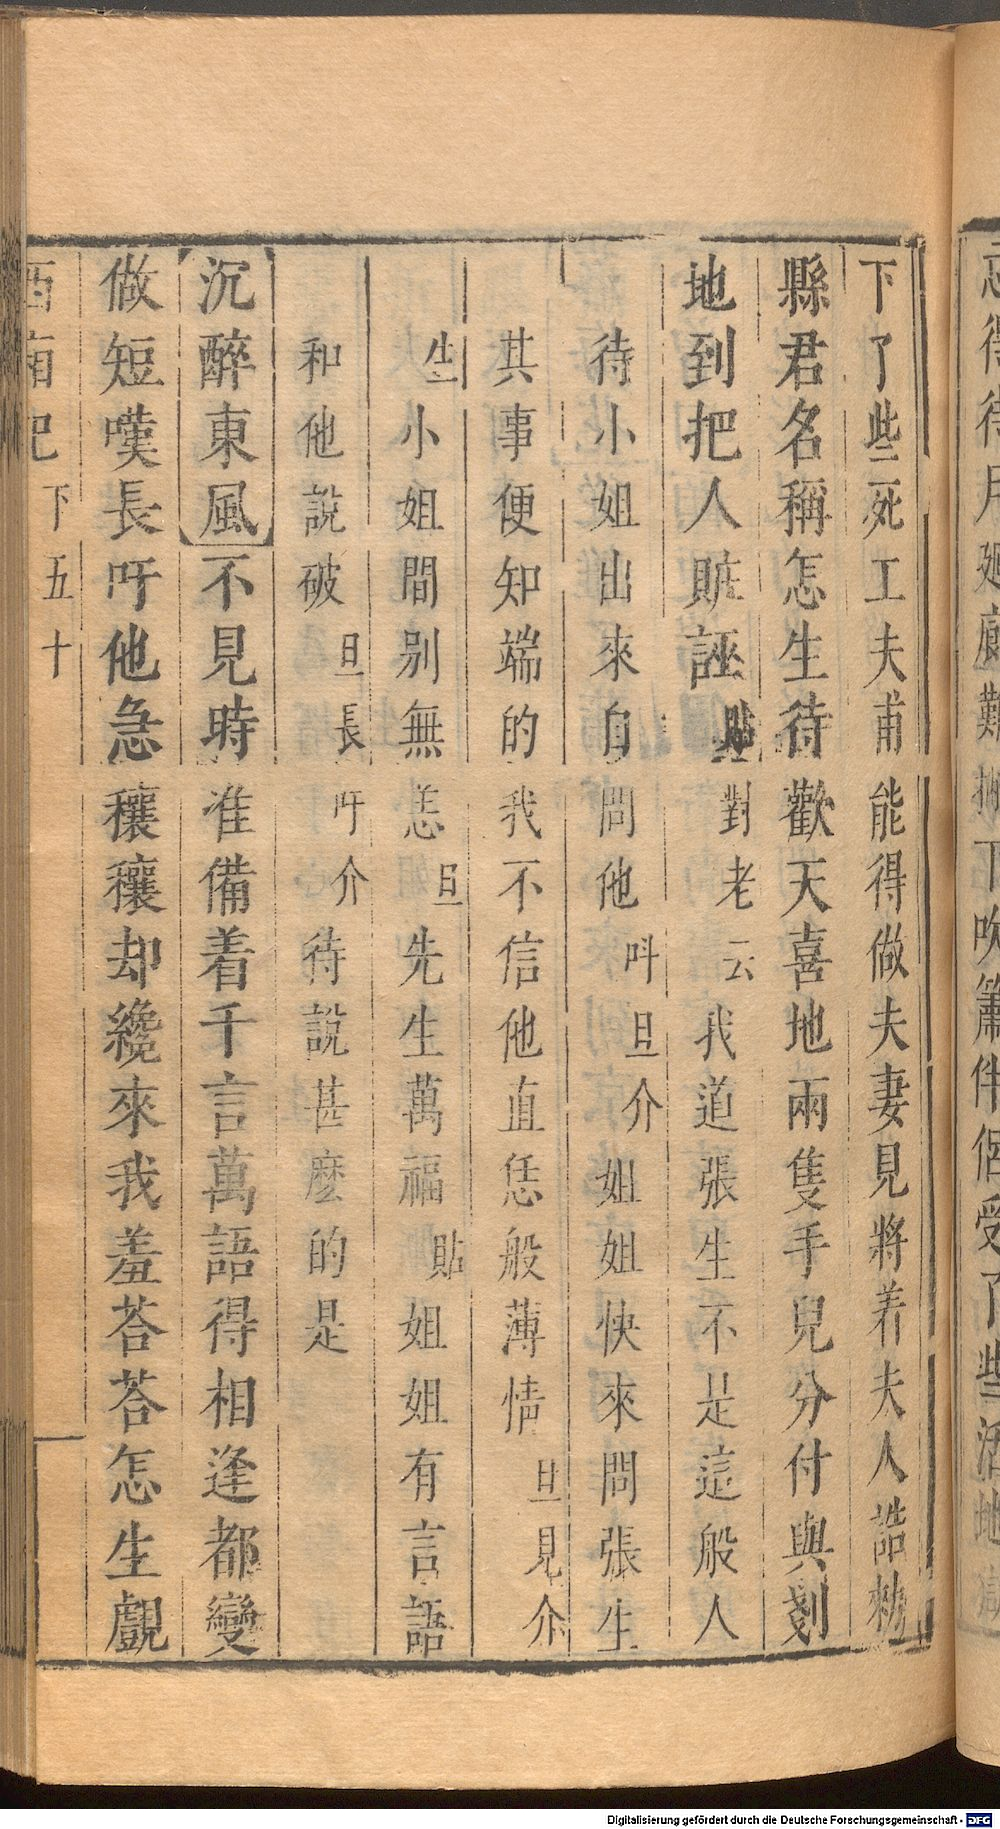 下了些死工夫甫能得做夫妻見將着夫人誥勑
縣君名稱怎生待歡天喜地兩隻手兒分付與剗
地到把人賍誣貼對老云我道張生不是這般人
待小姐出來自問他呌旦介姐姐快來問張生
其事便知端的我不信他直恁般薄情旦見介
生小姐間别無恙旦先生萬福貼姐姐有言語
和他說破旦長吁介待說甚麽的是
【沉醉東風】不見時准備着千言萬語得相逢都變
做短嘆長吁他急穰穰却纔來我羞荅荅怎生覷
西廂記 下 五十
忘待得月廻廊難掤下吹簫伴侶受了些活地獄
Digitalisierung gefördert durch die Deutsche Forschungsgemeinschaft - DFG